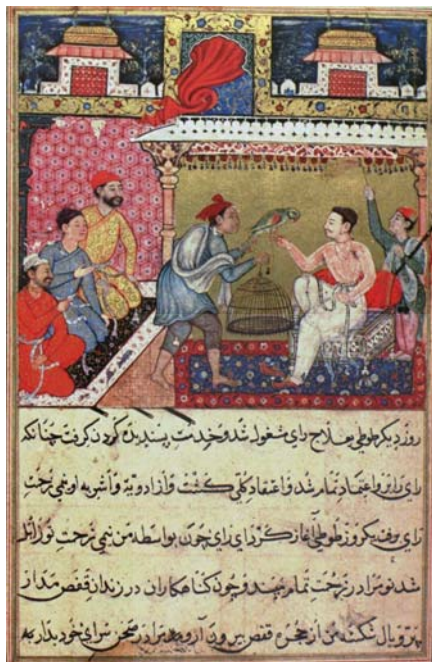 روز دیگر طوطی بعلاج رای مشغول شد و خدمت کردن گرفت چنانکه
رای را برو اعتماد تمام شد و اعتقاد کلی گشت و از ادویه و اشربه او نیمی زحمت
رای برفت یکروز طوطی آغاز کرد ای رای چون بواسطه من نیمی زحمت تو زائل
شد تو مرا در زحمت تمام مپسند و چون کناهکاران در زندان قفص مدار
پر و بال شکسته من از حجره قفص بیرون آر و مرا در صحن سرای خود بدار به